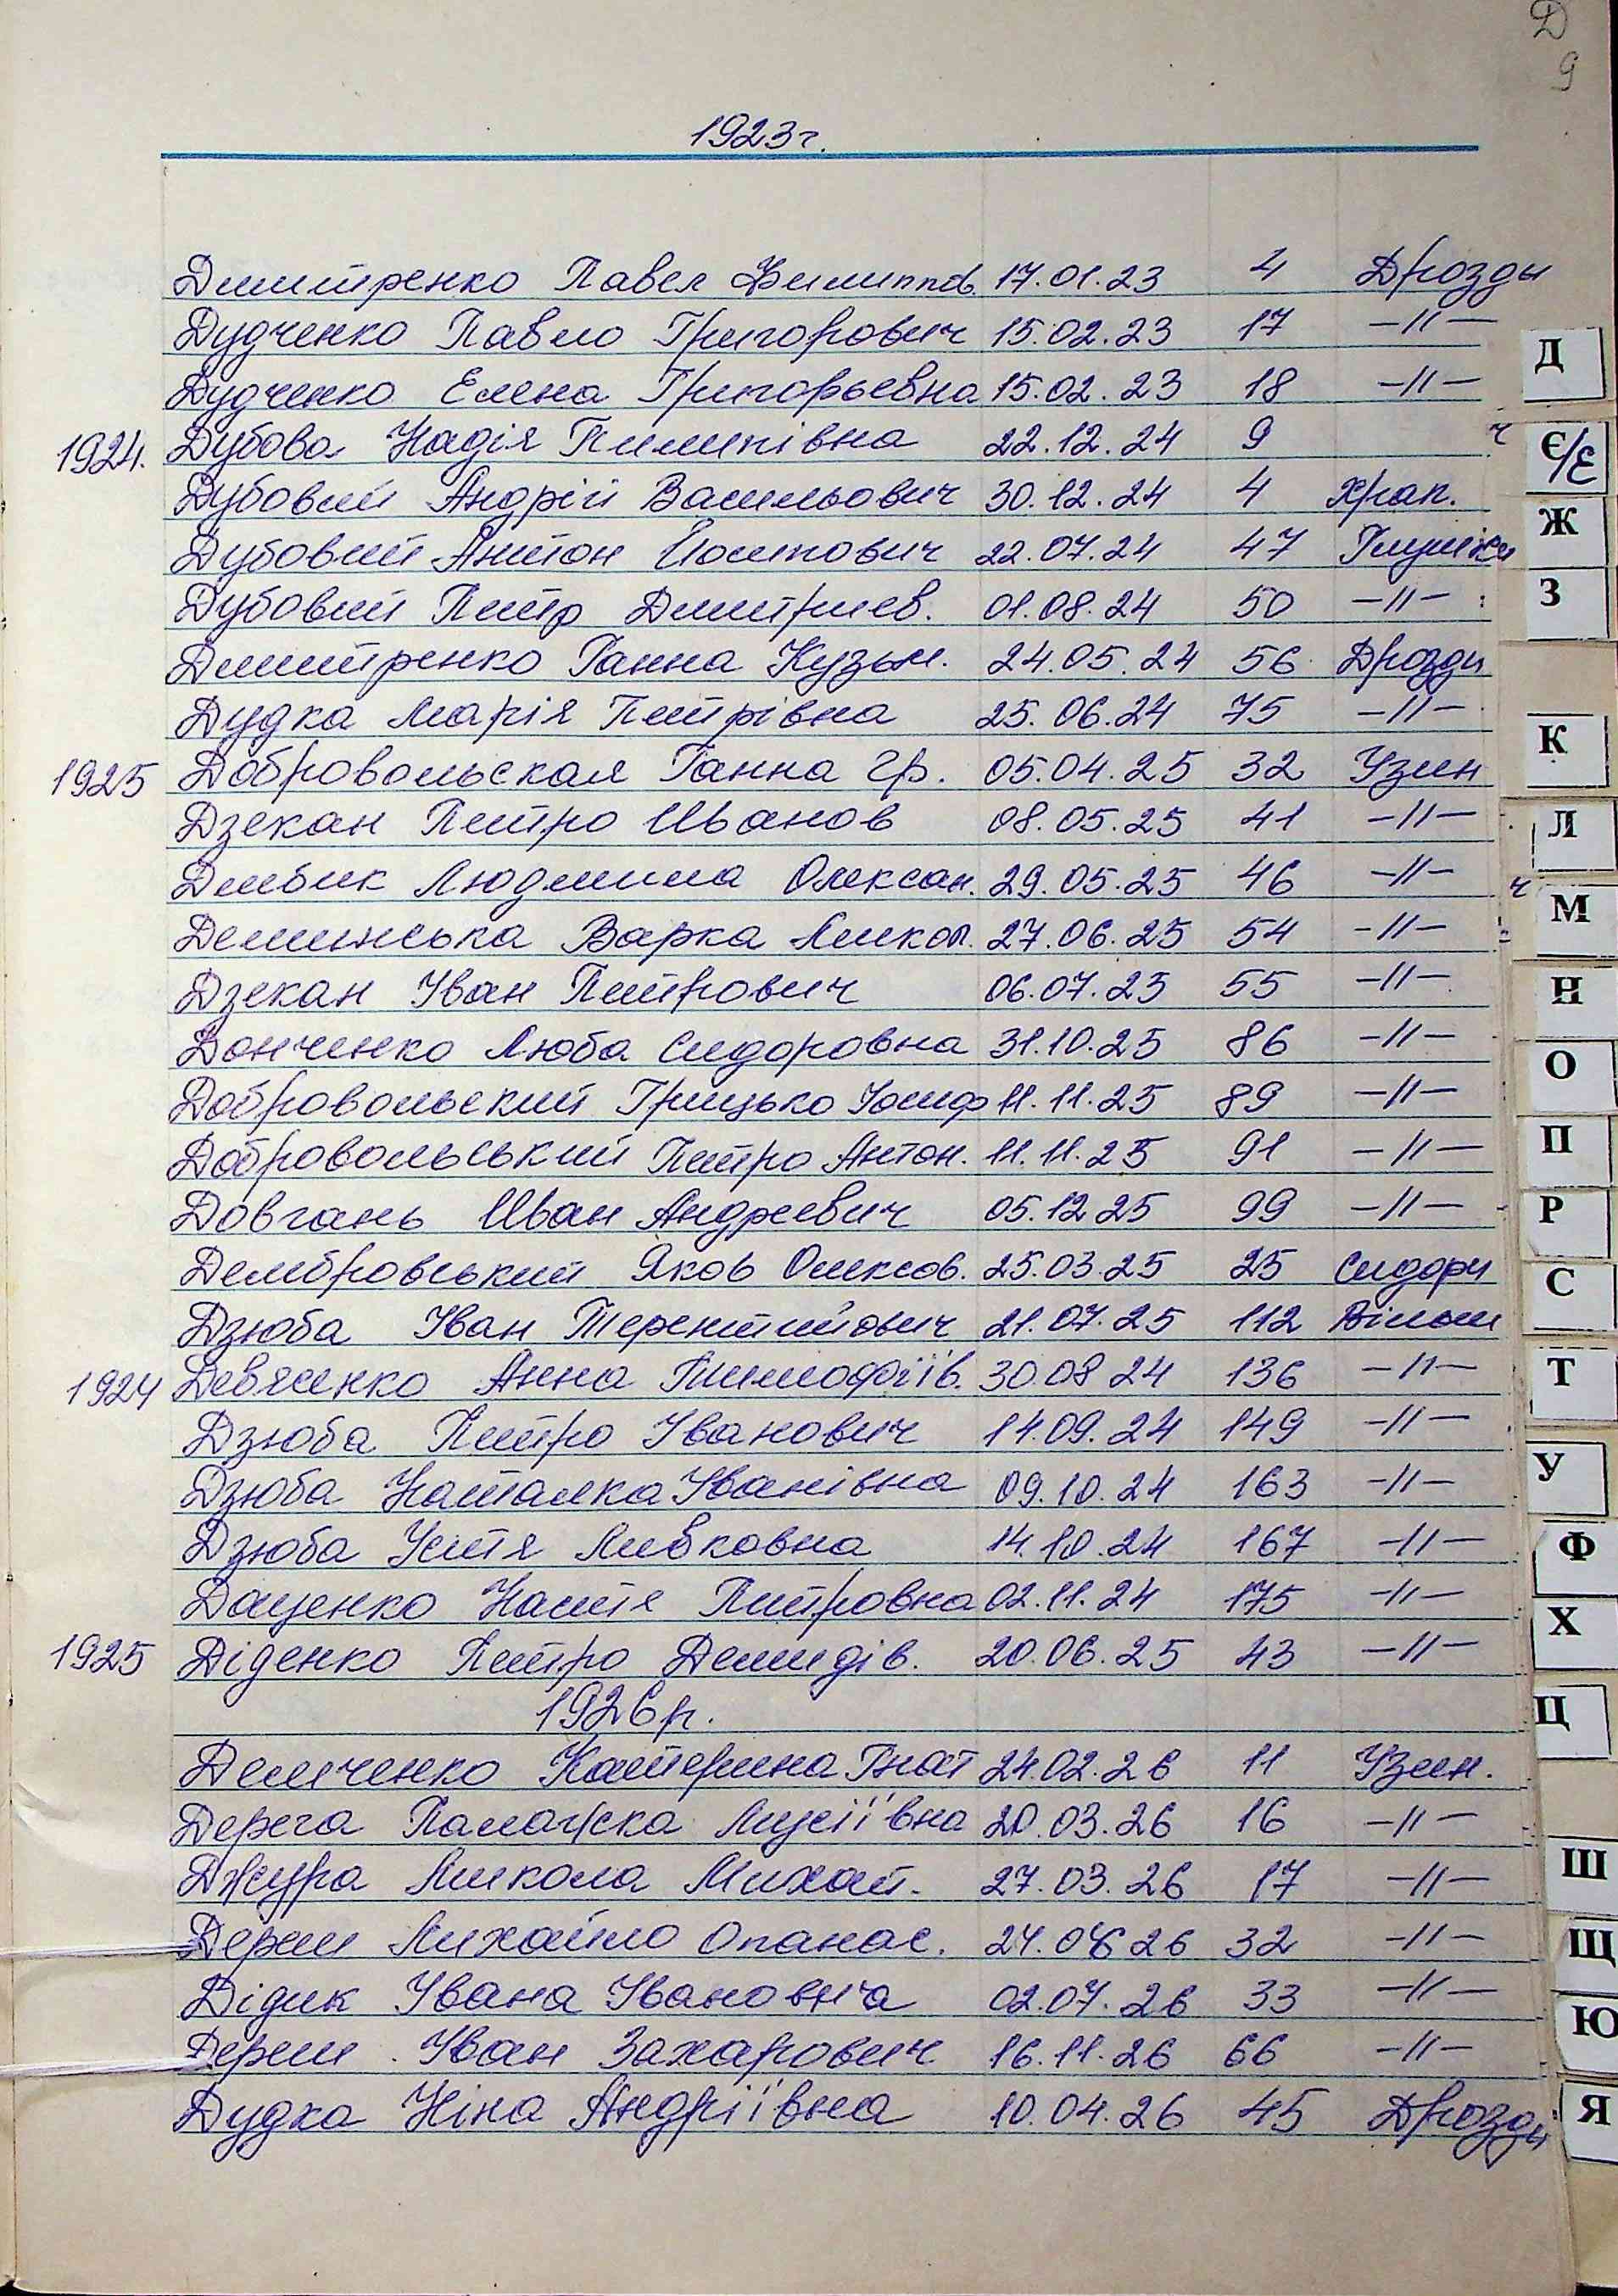 Д
9
1923г.
Дмитренко Павел Филиппов. 17.01.23 4 Дрозды
Дудченко Павло Григорович 15.02.23 17 –〃–
Дудченко Елена Григорьевна 15.02.23 18 –〃–
1924. Дубова Надія Пилипівна 22.12.24 9
Дубовий Андрій Васильович 30.12.24 4 Храп.
Дубовий Антон Йосипович 22.07.24 47
Дубовий Петр Дмитриев. 01.08.24 50 –〃–
Дмитренко Ганна Кузьм. 24.05.24 56 Дрозди
Дудка Марія Петрівна 25.06.24 75 –〃–
1925 Добровольская Ганна Гр. 05.04.25 32 Узин
Дзекан Петро Иванов 08.05.25 41 –〃–
Дембик Людмила Олексан. 29.05.25 46 –〃–
Варка Микол. 27.06.25 54 –〃–
Дзекан Іван Петрович 06.07.25 55 –〃–
Донченко Люба Сидоровна 31.10.25 86 –〃–
Добровольский Грицько Йосиф 11.11.25 89 –〃–
Добровольський Петро Антон. 11.11.25 91 –〃–
Довгань Иван Андреевич 05.12.25 99 –〃–
Домбровський Яков Олексов. 25.03.25 25 Сидори
Дзюба Іван Терентийович 21.07.25 112 Вільш
1924 Девяченко Анна Тимофіїв. 30.08 24 136 –〃–
Дзюба Петро Іванович 14.09.24 149 –〃–
Дзюба Наталка Іванівна 09.10.24 163 –〃–
Дзюба Устя Левковна 14.10.24 167 –〃–
Даценко Настя Петровна 02.11.24 175 –〃–
1925 Діденко Петро Демидів. 20.06.25 43 –〃–
1926 р.
Демченко Катерина Гнат 24.02.26 11 Узин.
Дерега Палажка Мусіївна 20.03.26 16 –〃–
Джура Микола Михай. 27.03.26 17 –〃–
Дереш Михайло Опанас. 24.06 26 32 –〃–
Дідик Івана Івановича 02.07.26 33 –〃–
Дереш Іван Захарович 16.11.26 66 –〃–
Дудка Ніна Андріївна 10.04.26 45 Дрозди
Д
Є/Е
Ж
З
К
Л
М
Н
О
П
Р
С
Т
У
Ф
Х
Ц
Ш
Щ
Ю
Я